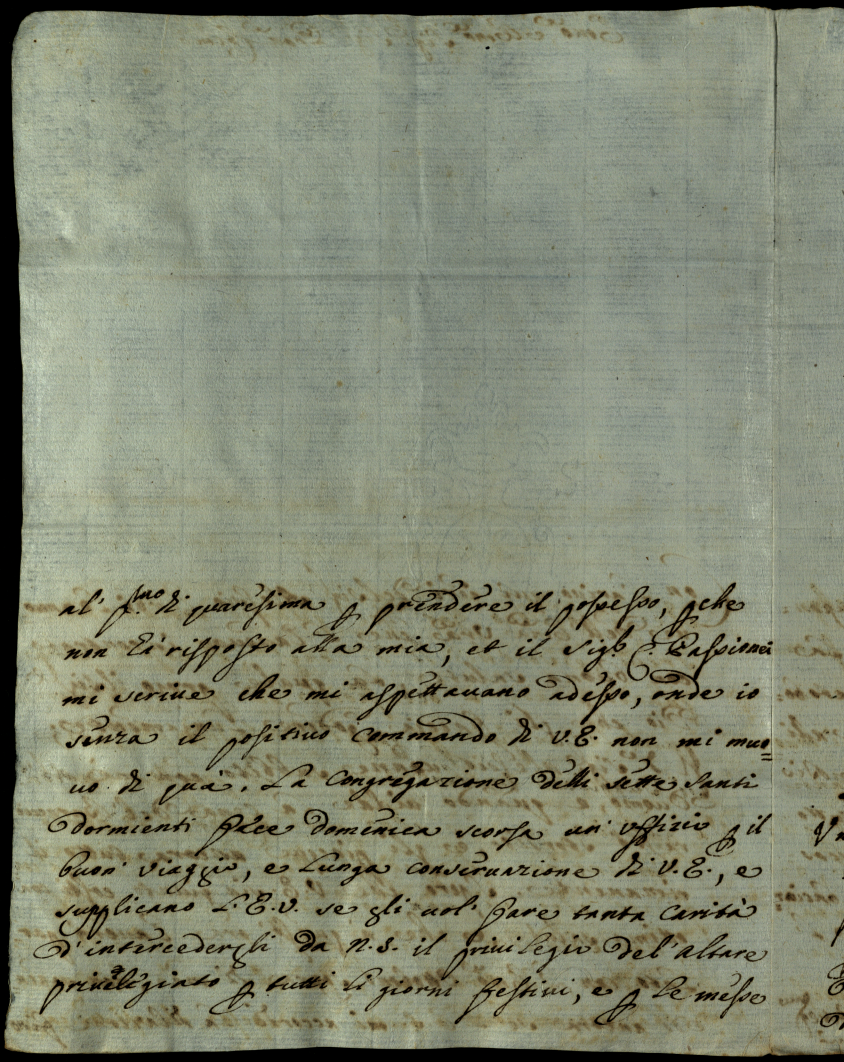 al' p.mo di quaresima p prendere il possesso, pche
non hà risposto alla mia, et il Sig.r C. Passionei
mi scriue che mi aspettauano adesso, onde io
senza il positiuo commando di V.E. non mi muo=
uo di quà. La Congregazione delli sette Santi
Dormienti fece Domenica scorsa un' Vffizio p il
buon' viaggio, e Lunga conseruazione di V.E., e
supplicano L'E.V. se gli uol' fare tanta Carità
d'intercedergli da N.S. il priuilegio del'altare
priuilegiato p tutti li giorni festiui, e p le messe